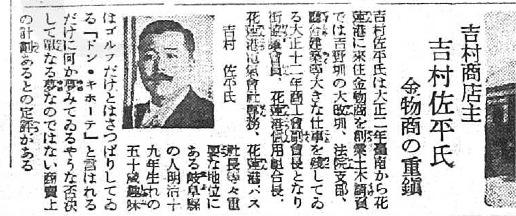 吉村商店主
吉村佐平氏
金物商の重鎮
吉村佐平氏は大正二年臺南から花
蓮港に來住金物商を創業土木請負
では吉野圳の大改圳、法院支部、
建築等大きな仕事を殘してゐ
る大正十二年商工會副會長となり
街協議會員、花蓮港信用組合長、
花蓮港電氣會社專務、
花蓮港バス
社長等々重
要な地位に
ある岐阜縣
の人明治十
九年生れの
五十歲趣味
吉村 佐平氏
はゴルフだけとはさつぱりしてゐ
る「ドン・キホーテ」と言はれる
だけに何か夢みてゐるやうな否決
して單なる夢なのではない商賣上
の計劃あるとの定評がある